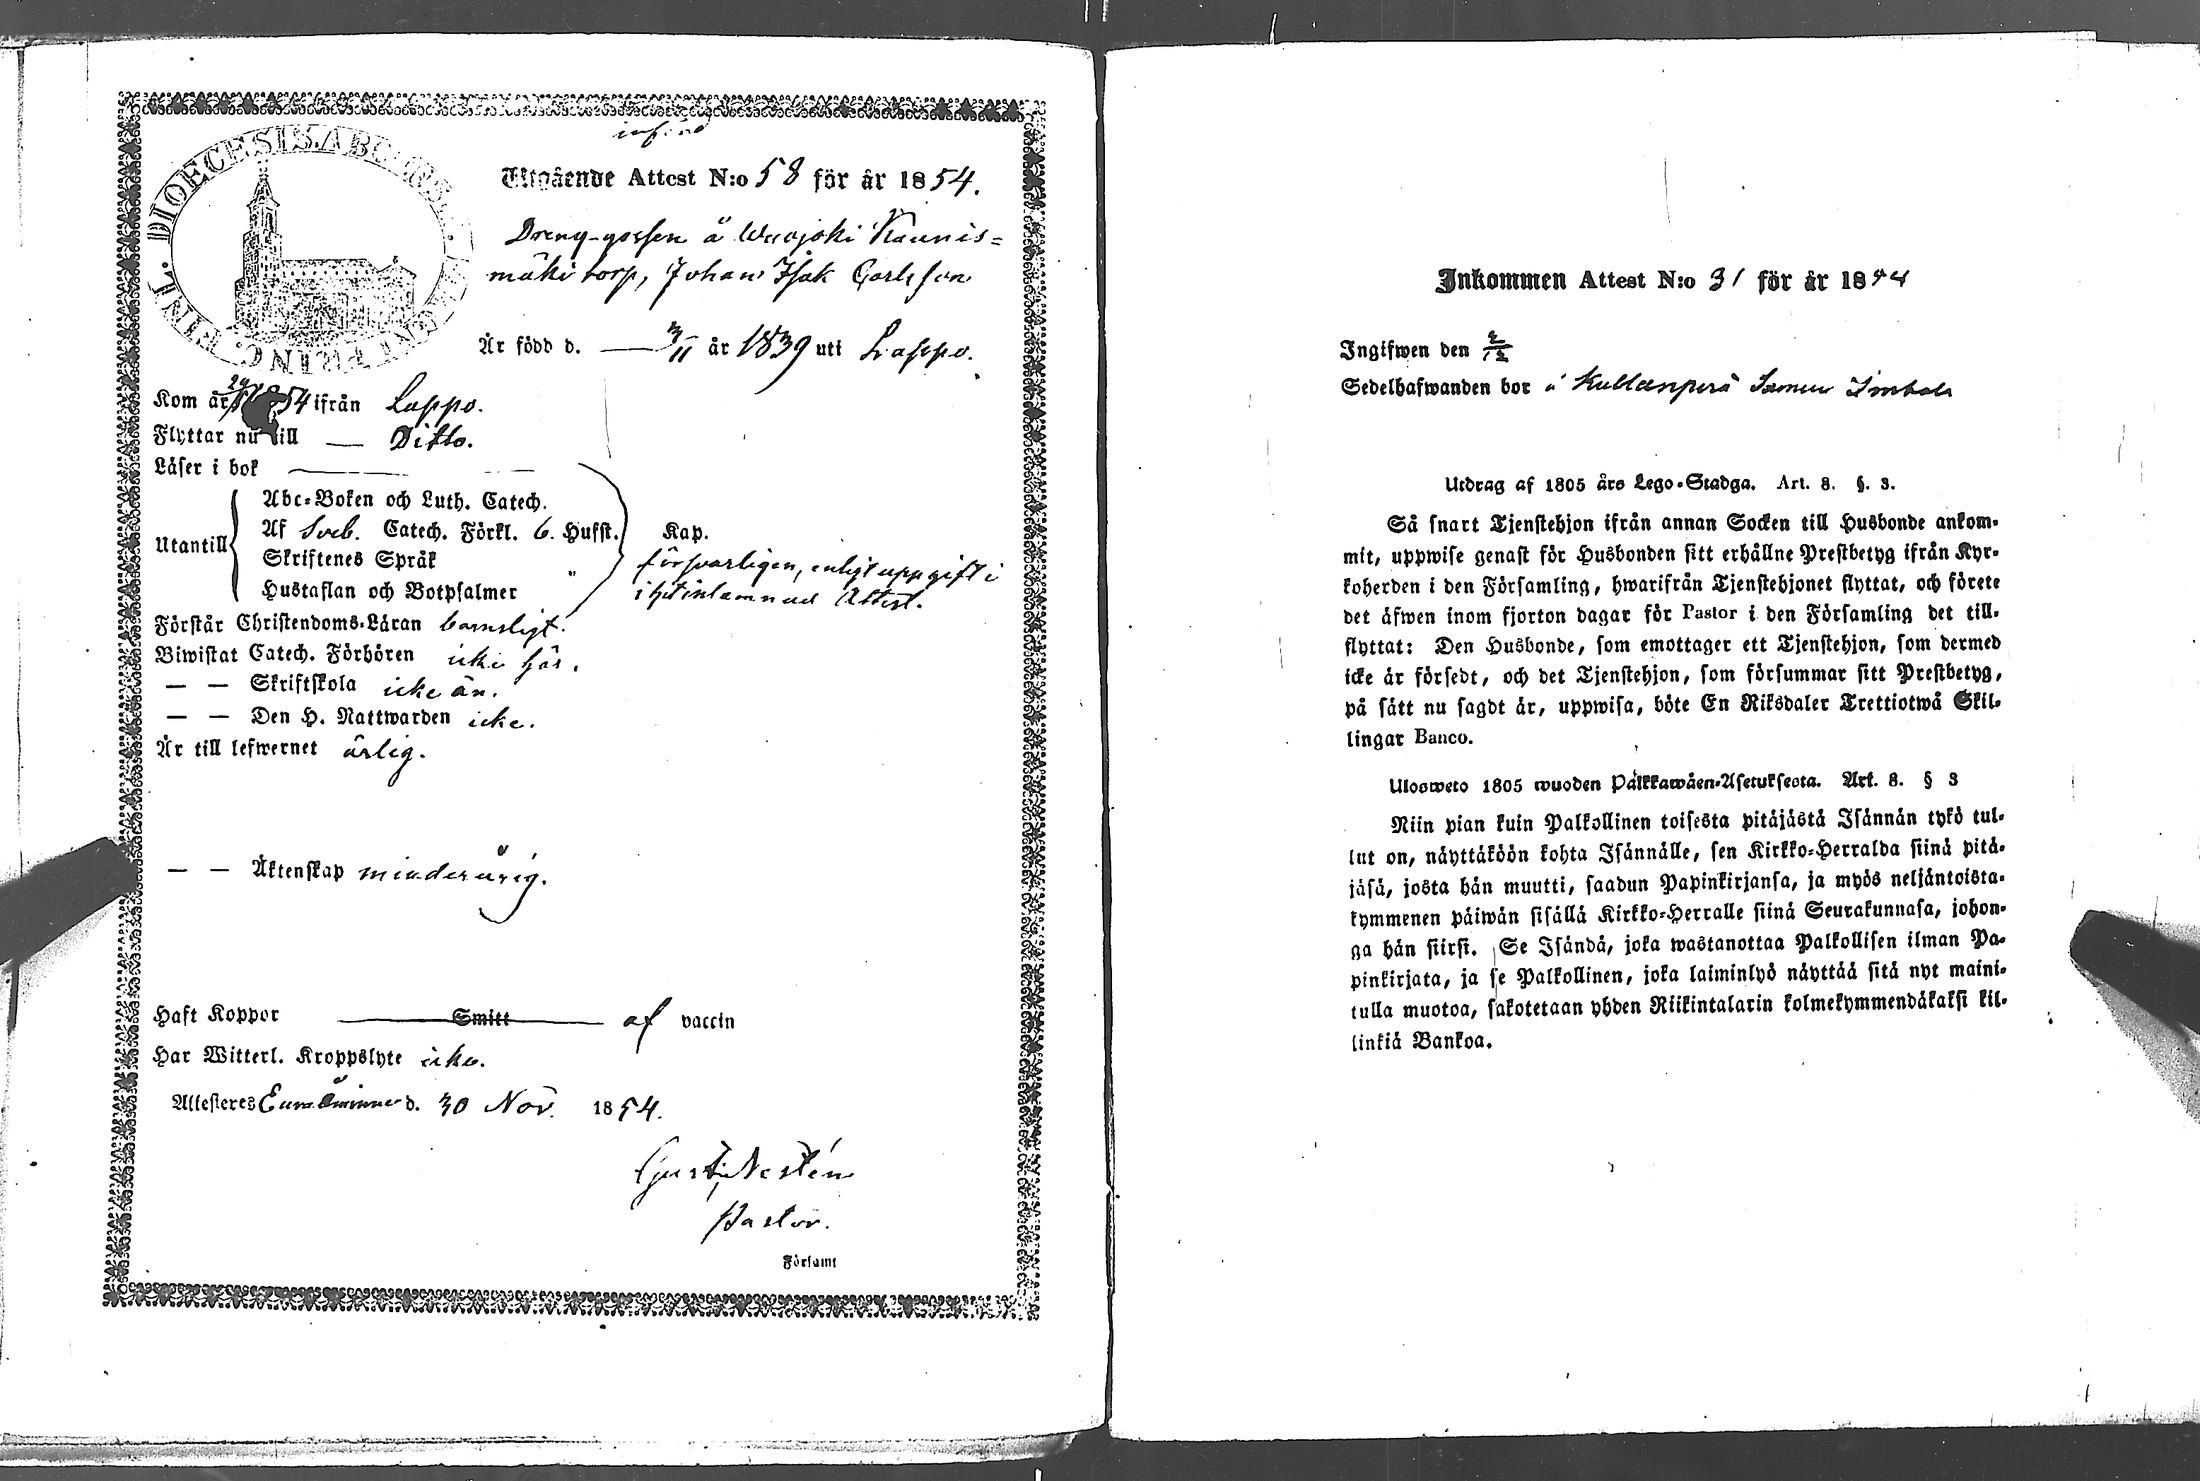 införd
DIOECESIS ABOENSIS. MAGNI PRINC. FINL.
Utgående Attest N:o 58 för år 1854.
Dreng-gossen å Wuojoki Kaunis-
mäki torp, Johan Isak Carlsson
Är född d. — 3/11 år 1839 uti Lappo.
Kom år 1854 ifrån Lappo.
Flyttar nu till — Ditto.
Läser i bok —
Utantill
Abc-Boken och Luth. Catech.
Af Sveb. Catech. Förkl. 6. Hufst. Kap.
Skriftenes Språk
Hustaflan och Botpsalmer
försvarligen, enligt uppgift i
hitinlemnad Attest.
Förstår Christendoms-Läran barnsligt.
Biwistat Catech. Förhören icke här.
— — Skriftskola icke än.
— — Den H. Nattwarden icke.
Är till lefwernet ärlig.
— — Äktenskap minderårig.
Haft Koppor — Smitt — af vaccin
Har Witterl. Kroppslyte icke.
Attesteras Eura Åminne d. 30 Nov. 1854.
Gust. Nestén
Pastor.
Församl
Inkommen Attest N:o 31 för år 1854
Ingifwen den 2/12
Sedelhafwanden bor å Kullanperä
Utdrag af 1805 års Lego-Stadga. Art. 8. §. 3.
Så snart Tjenstehjon ifrån annan Socken till Husbonde ankom-
mit, uppwise genast för Husbonden sitt erhållne Prestbetyg ifrån Kyr-
koherden i den Församling, hwarifrån Tjenstehjonet flyttat, och förete
det äfwen inom fjorton dagar för Pastor i den Församling det till-
flyttat: Den Husbonde, som emottager ett Tjenstehjon, som dermed
icke är försedt, och det Tjenstehjon, som försummar sitt Prestbetyg,
på sätt nu sagdt är, uppwisa, böte En Riksdaler Trettiotwå Skil-
lingar Banco.
Ulosweto 1805 wuoden Palkkawäen-Asetuksesta. Art. 8. § 3
Niin pian kuin Palkollinen toisesta pitäjästä Isännän tykö tul-
lut on, näyttäköön kohta Isännälle, sen Kirkko-Herralda siinä pitä-
jäsä, josta hän muutti, saadun Papinkirjansa, ja myös neljäntoista-
kymmenen päiwän sisällä Kirkko-Herralle siinä Seurakunnasa, johon-
ga hän siirsi. Se Isändä, joka wastanottaa Palkollisen ilman Pa-
pinkirjata, ja se Palkollinen, joka laiminlyö näyttää sitä nyt maini-
tulla muotoa, sakotetaan yhden Riikintalarin kolmekymmendäkaksi kil-
linkiä Bankoa.